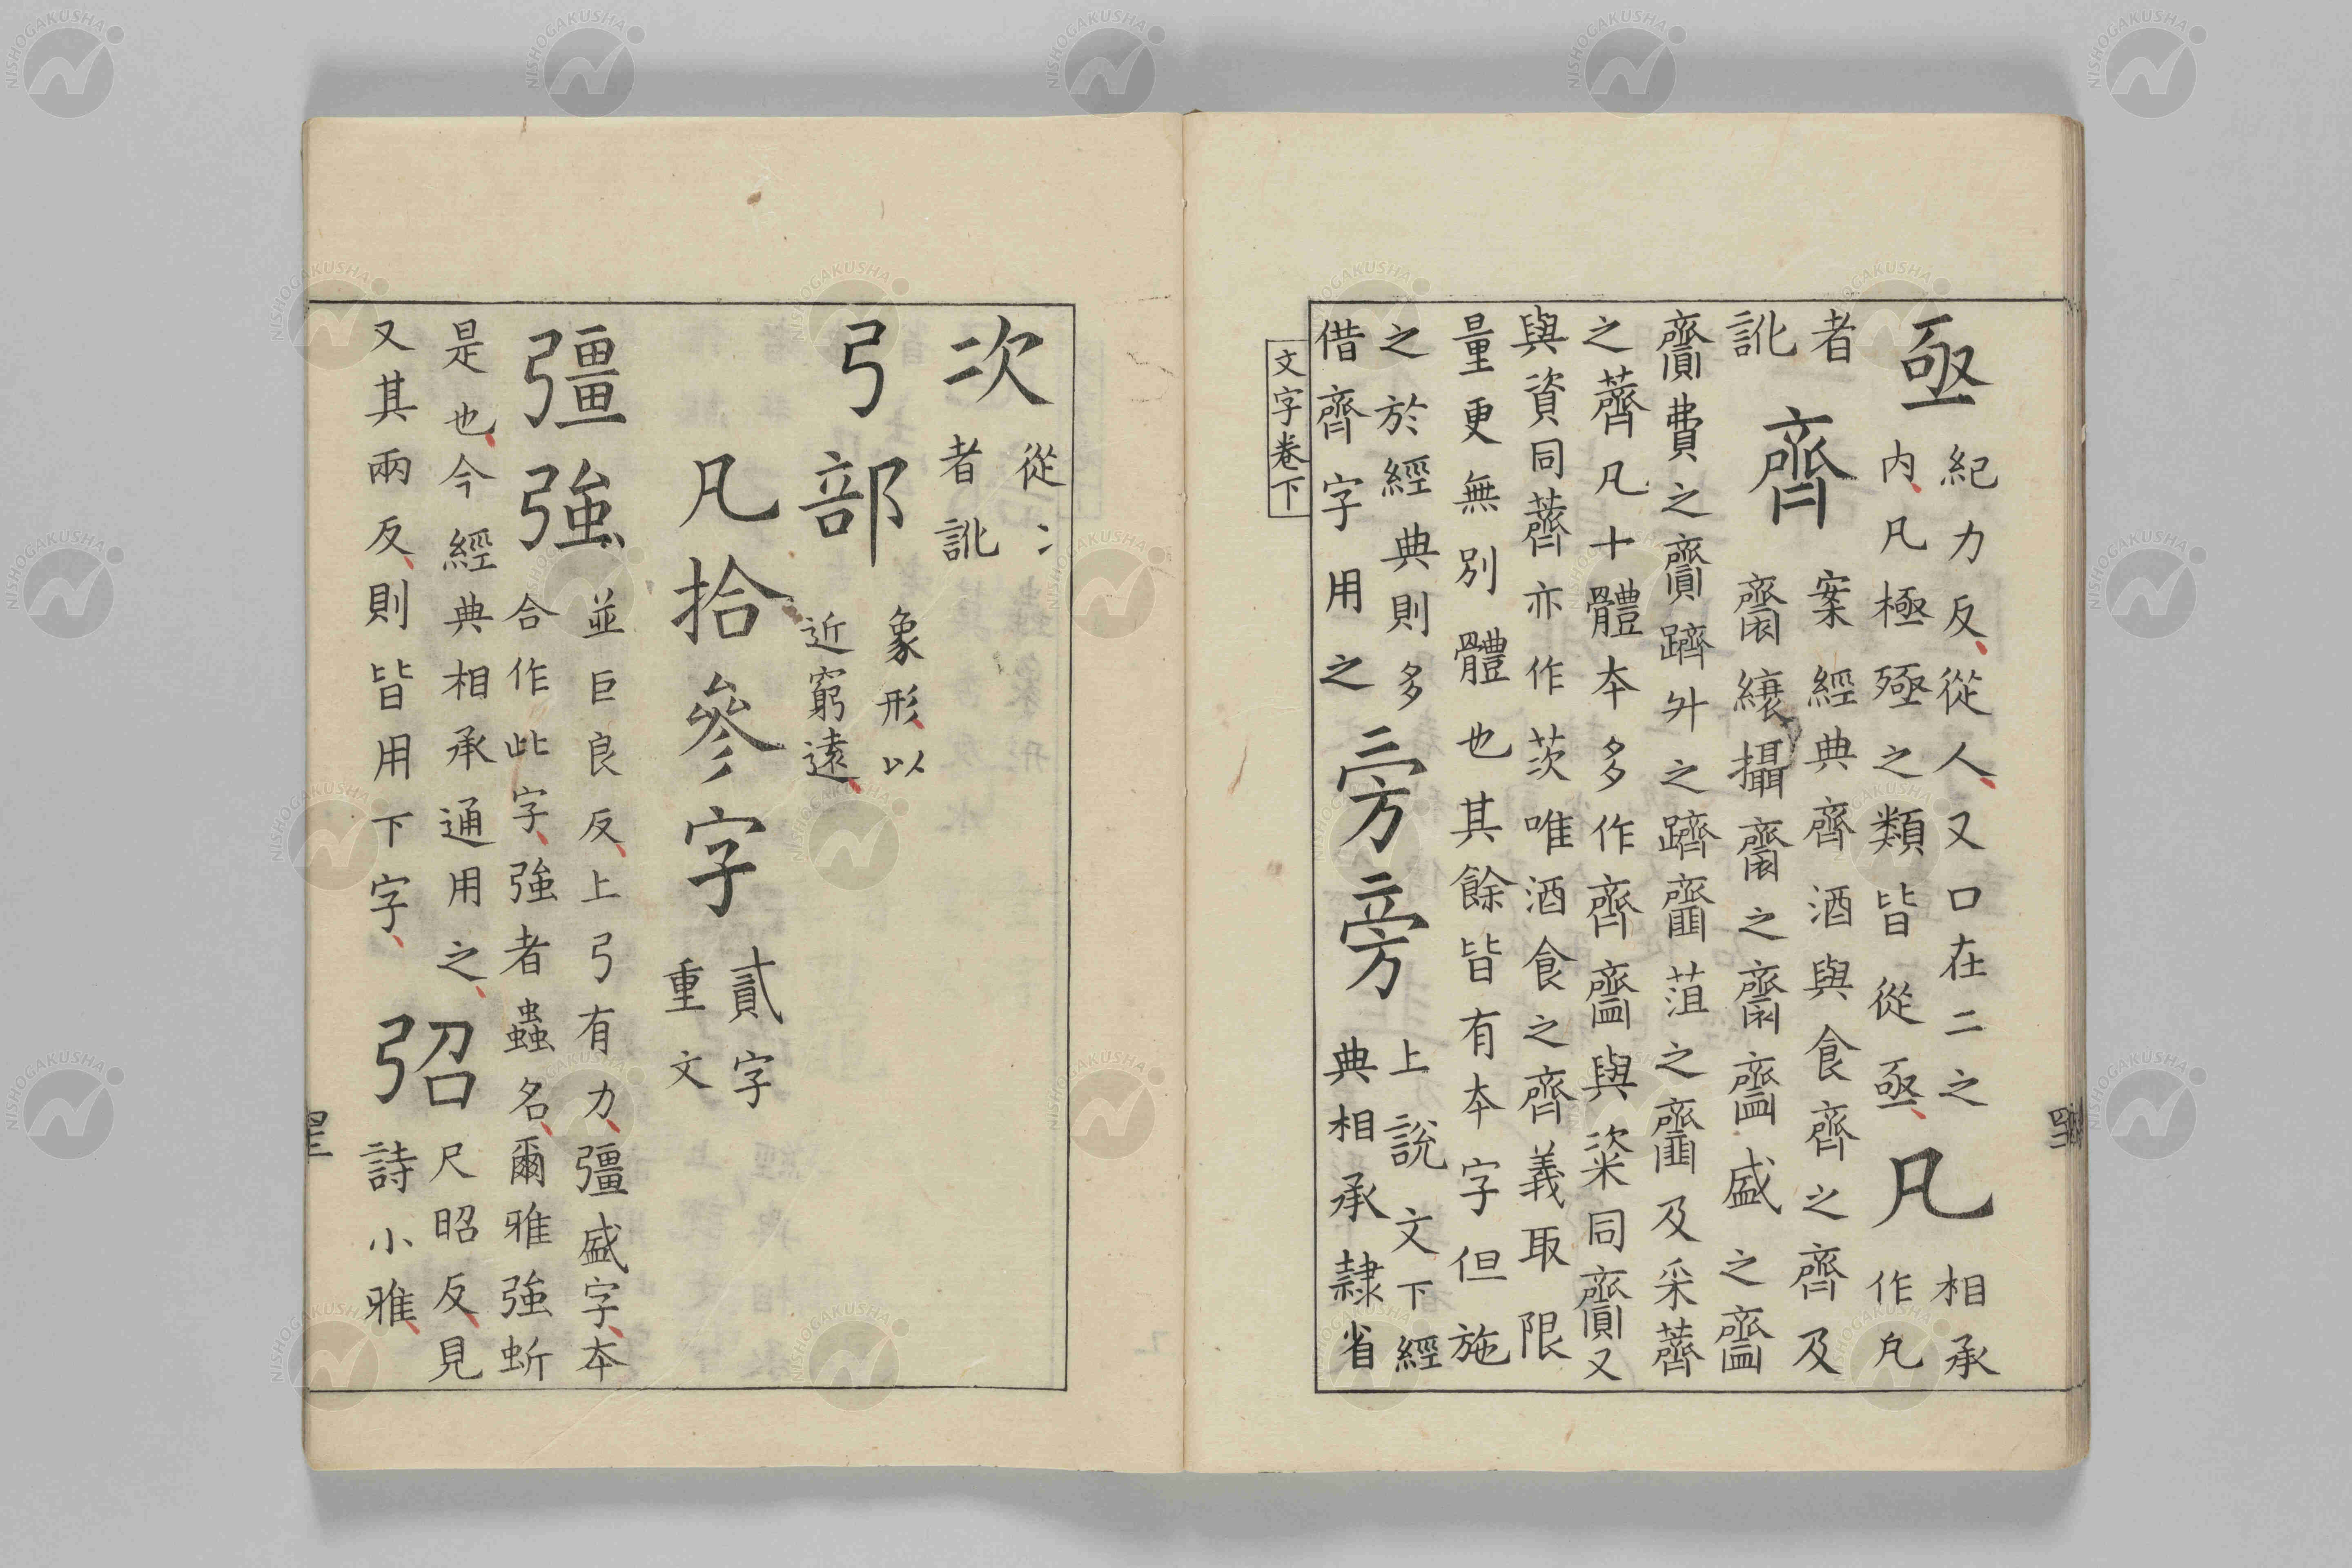 亟
紀力反從人又口在二之
内凡極殛之類皆從亟
凡
相承
作凢
者
訛
齊
案經典齊酒與食齊之齊及
𪗋縗攝𪗋之𪗋齍盛之齍
齎費之齎躋升之躋齏菹之齏及采薺
之薺凡十體本多作齊齍與粢同齎又
與資同薺亦作茨唯酒食之齊義取限
量更無別體也其餘皆有本字但施
之於經典則多
借齊字用之
㫄旁
上說文下經
典相承隸省
文字卷下
次
從二
者訛
弓部
象形以
近窮遠
凡拾參字
貳字
重文
彊強
並巨良反上弓有力彊盛字本
合作此字強者蟲名爾雅強蚚
是也今經典相承通用之
又其兩反則皆用下字
弨
尺昭反見
詩小雅
NISHOGAKUSHA